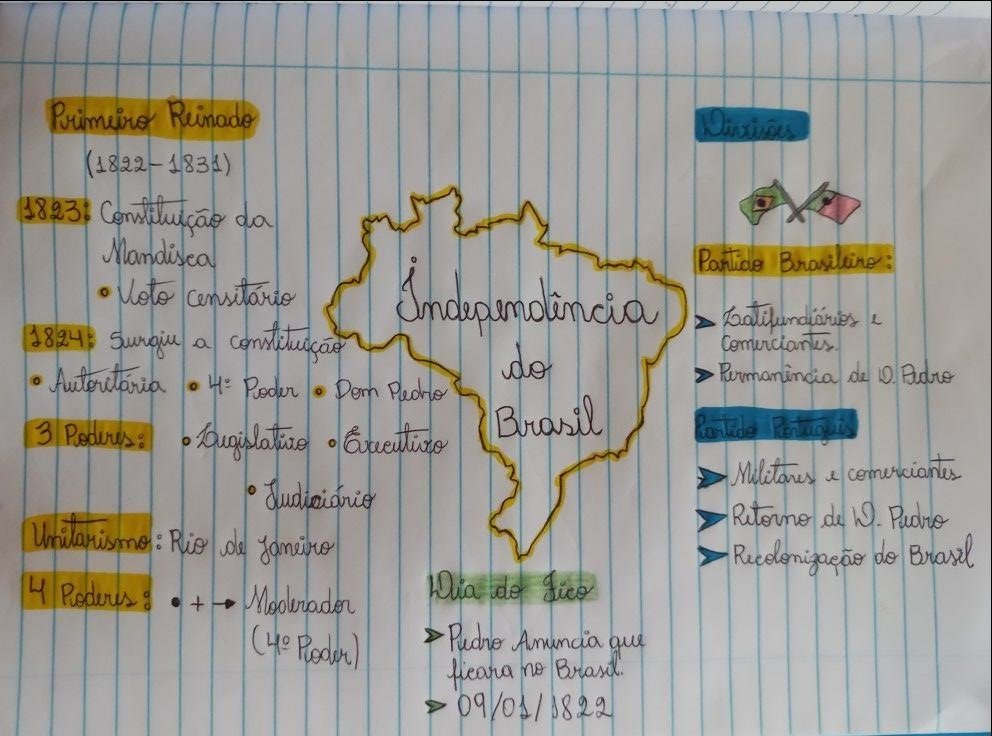 Primeiro Reinado
(1822-1831)
1823: Constituição da
Mandioca
• Voto censitário
1824: Surgiu a constituição
• Autoritária • 4º Poder • Dom Pedro
3 Poderes: • Legislativo • Executivo
• Judiciário
Unitarismo: Rio de Janeiro
4 Poderes: • + → Moderador
(4º Poder)
Independência
do
Brasil
Dia do Fico
➤ Pedro Anuncia que
ficara no Brasil.
➤ 09/01/1822
Divisões
Partido Brasileiro:
➤ Latifundiários e
Comerciantes.
➤ Permanência de D. Pedro
Partido Português
➤ Militares e comerciantes
➤ Retorno de D. Pedro
➤ Recolonização do Brasil